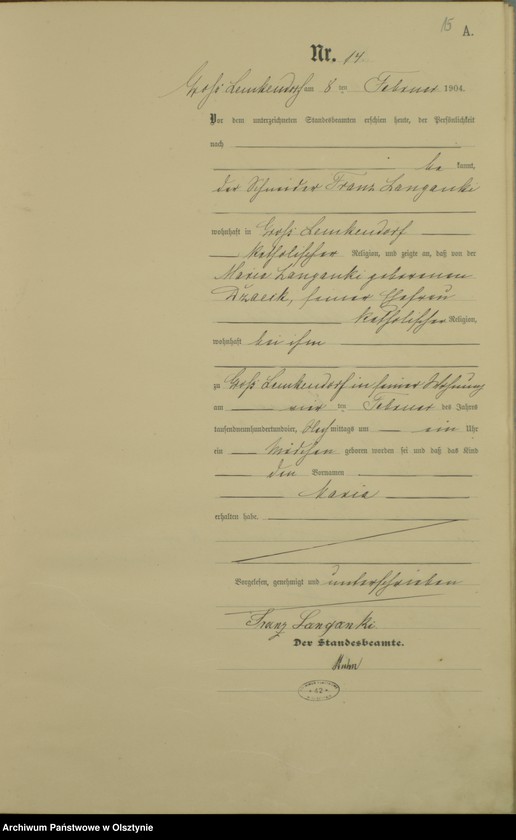 15
A.
Nr. 14.
Groß Lemkendorf am 8 ten Februar 1904.
Vor dem unterzeichneten Standesbeamten erschien heute, der Persönlichkeit
nach
be kannt,
der Schneider Franz Langanki
wohnhaft in Groß Lemkendorf
katholischer Religion, und zeigte an, daß von der
Maria Langanki geborenen
seiner Ehefrau
katholischer Religion,
wohnhaft bei ihm
zu Groß Lemkendorf in seiner Wohnung
am vier ten Februar des Jahres
tausendneunhundertundvier, Nachmittags um ein Uhr
ein Mädchen geboren worden sei und daß das Kind
den Vornamen
Maria
erhalten habe.
Vorgelesen, genehmigt und unterschrieben
Franz Langanki
Der Standesbeamte.
42
Archiwum Państwowe w Olsztynie